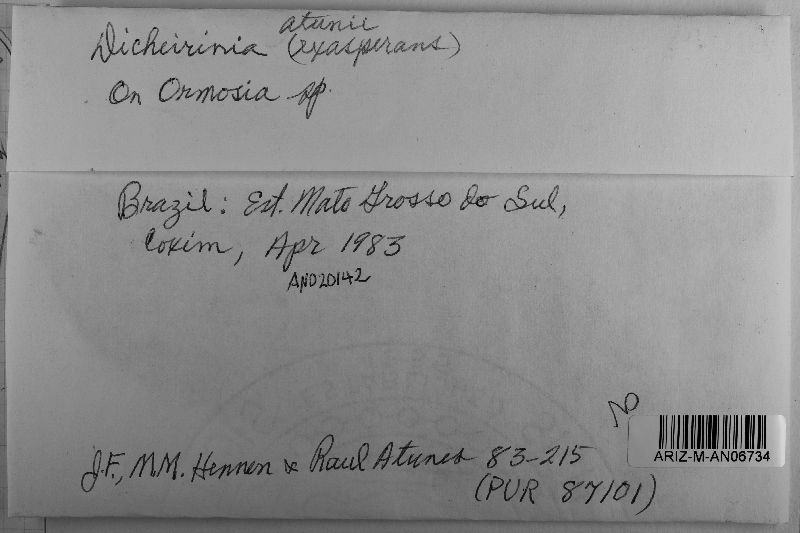 atunii
Dicheirinia (exasperans)
On Ormosia sp.
Brazil: Est. Mato Grosso do Sul,
Coxim, Apr 1983
AN020142
J.F., M.M. Hennen & Raul Atunes 83-215
(PUR 87101)
ARIZ-M-AN06734